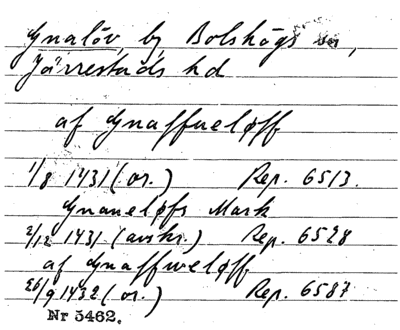 Gnalöv, by, Bolshögs sn,
Järrestads hd
af Gnaffueløff
1/8 1431 (or.) Rep. 6513.
Gnaueløfs Mark
2/12 1431 (avskr.) Rep. 6528
af Gnaffweløff
26/9 1432 (or.) Rep. 6587
Nr 5462.